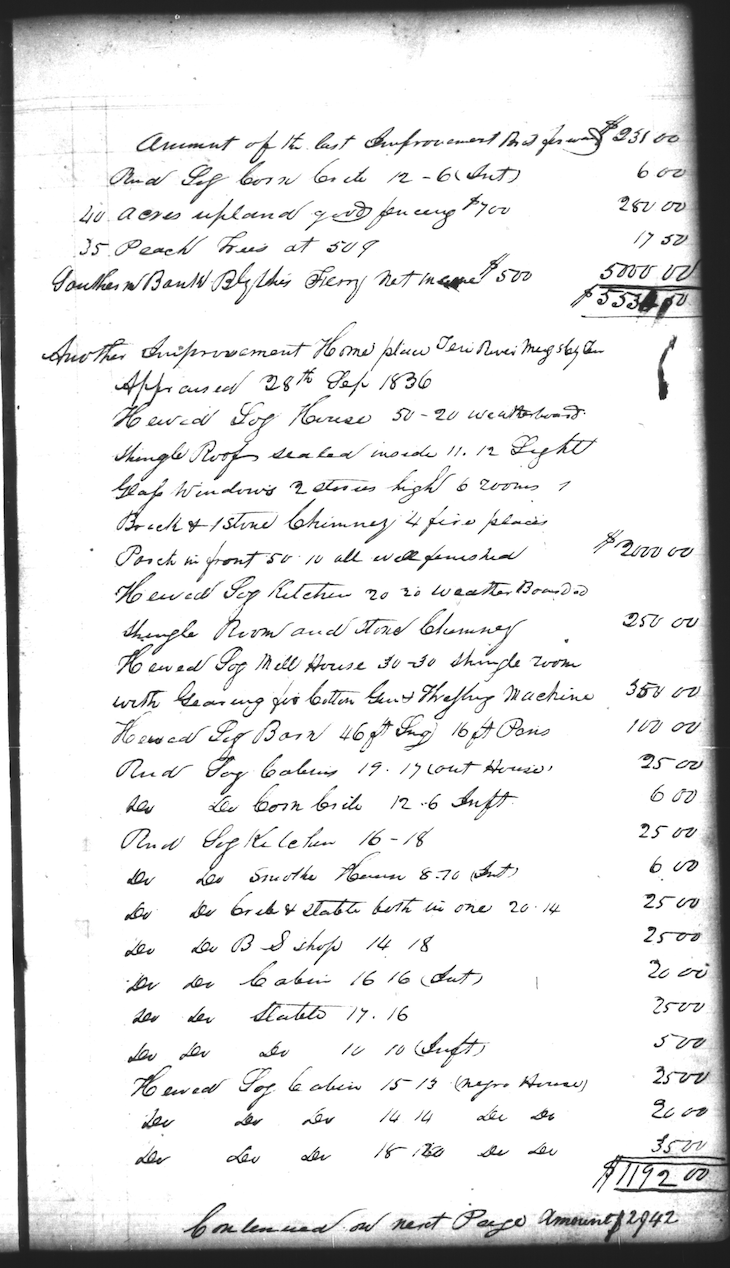 Amount of the last Improvement Brot forward $231 00
Rud Log Corn Crib 12-6 (Inft) 6 00
40 acres upland good fencing $700 280 00
35 Peach Trees at 50 ¢ 17 50
Southern Bank Blythes Ferry net income $500 5000 00
$5534 50
Another Improvement Home place Ten River Meigs Cty Ten
Appraised 28th Sep 1836
Hewed Log House 50-20 weatherboard
Shingle Roof sealed inside 11. 12 Light
Glass Windows 2 stories high 6 rooms 1
Brick & 1 Stone Chimney 4 fire places
Porch in front 50.10 all well finished $2000 00
Hewed Log Kitchen 20 20 Weather Boarded
Shingle Room and Stone Chimney 250 00
Hewed Log Mill House 30-30 Shingle room
with Gearing for Cotton Gin & Threshing Machine 350 00
Hewed Log Barn 46 ft Lng 16 ft Pens 100 00
Rud Log Cabins 19.17 (out House) 25 00
Do Do Corn Crib 12.6 Inft. 6 00
Rud Log Kitchen 16-18 25 00
Do Do Smoke House 8-10 (Inft) 6 00
Do Do Crib & Stable both in one 20.14 25 00
Do Do B S Shop 14 18 25 00
Do Do Cabin 16 16 (Inft) 20 00
Do Do Stable 17.16 25 00
Do Do Do 10 10 (Inft) 5 00
Hewed Log Cabin 15-13 (negro House) 25 00
Do Do Do 14 14 Do Do 20 00
Do Do Do 18 Do Do 35 00
$1192 00
Continued on next Page Amount $2942